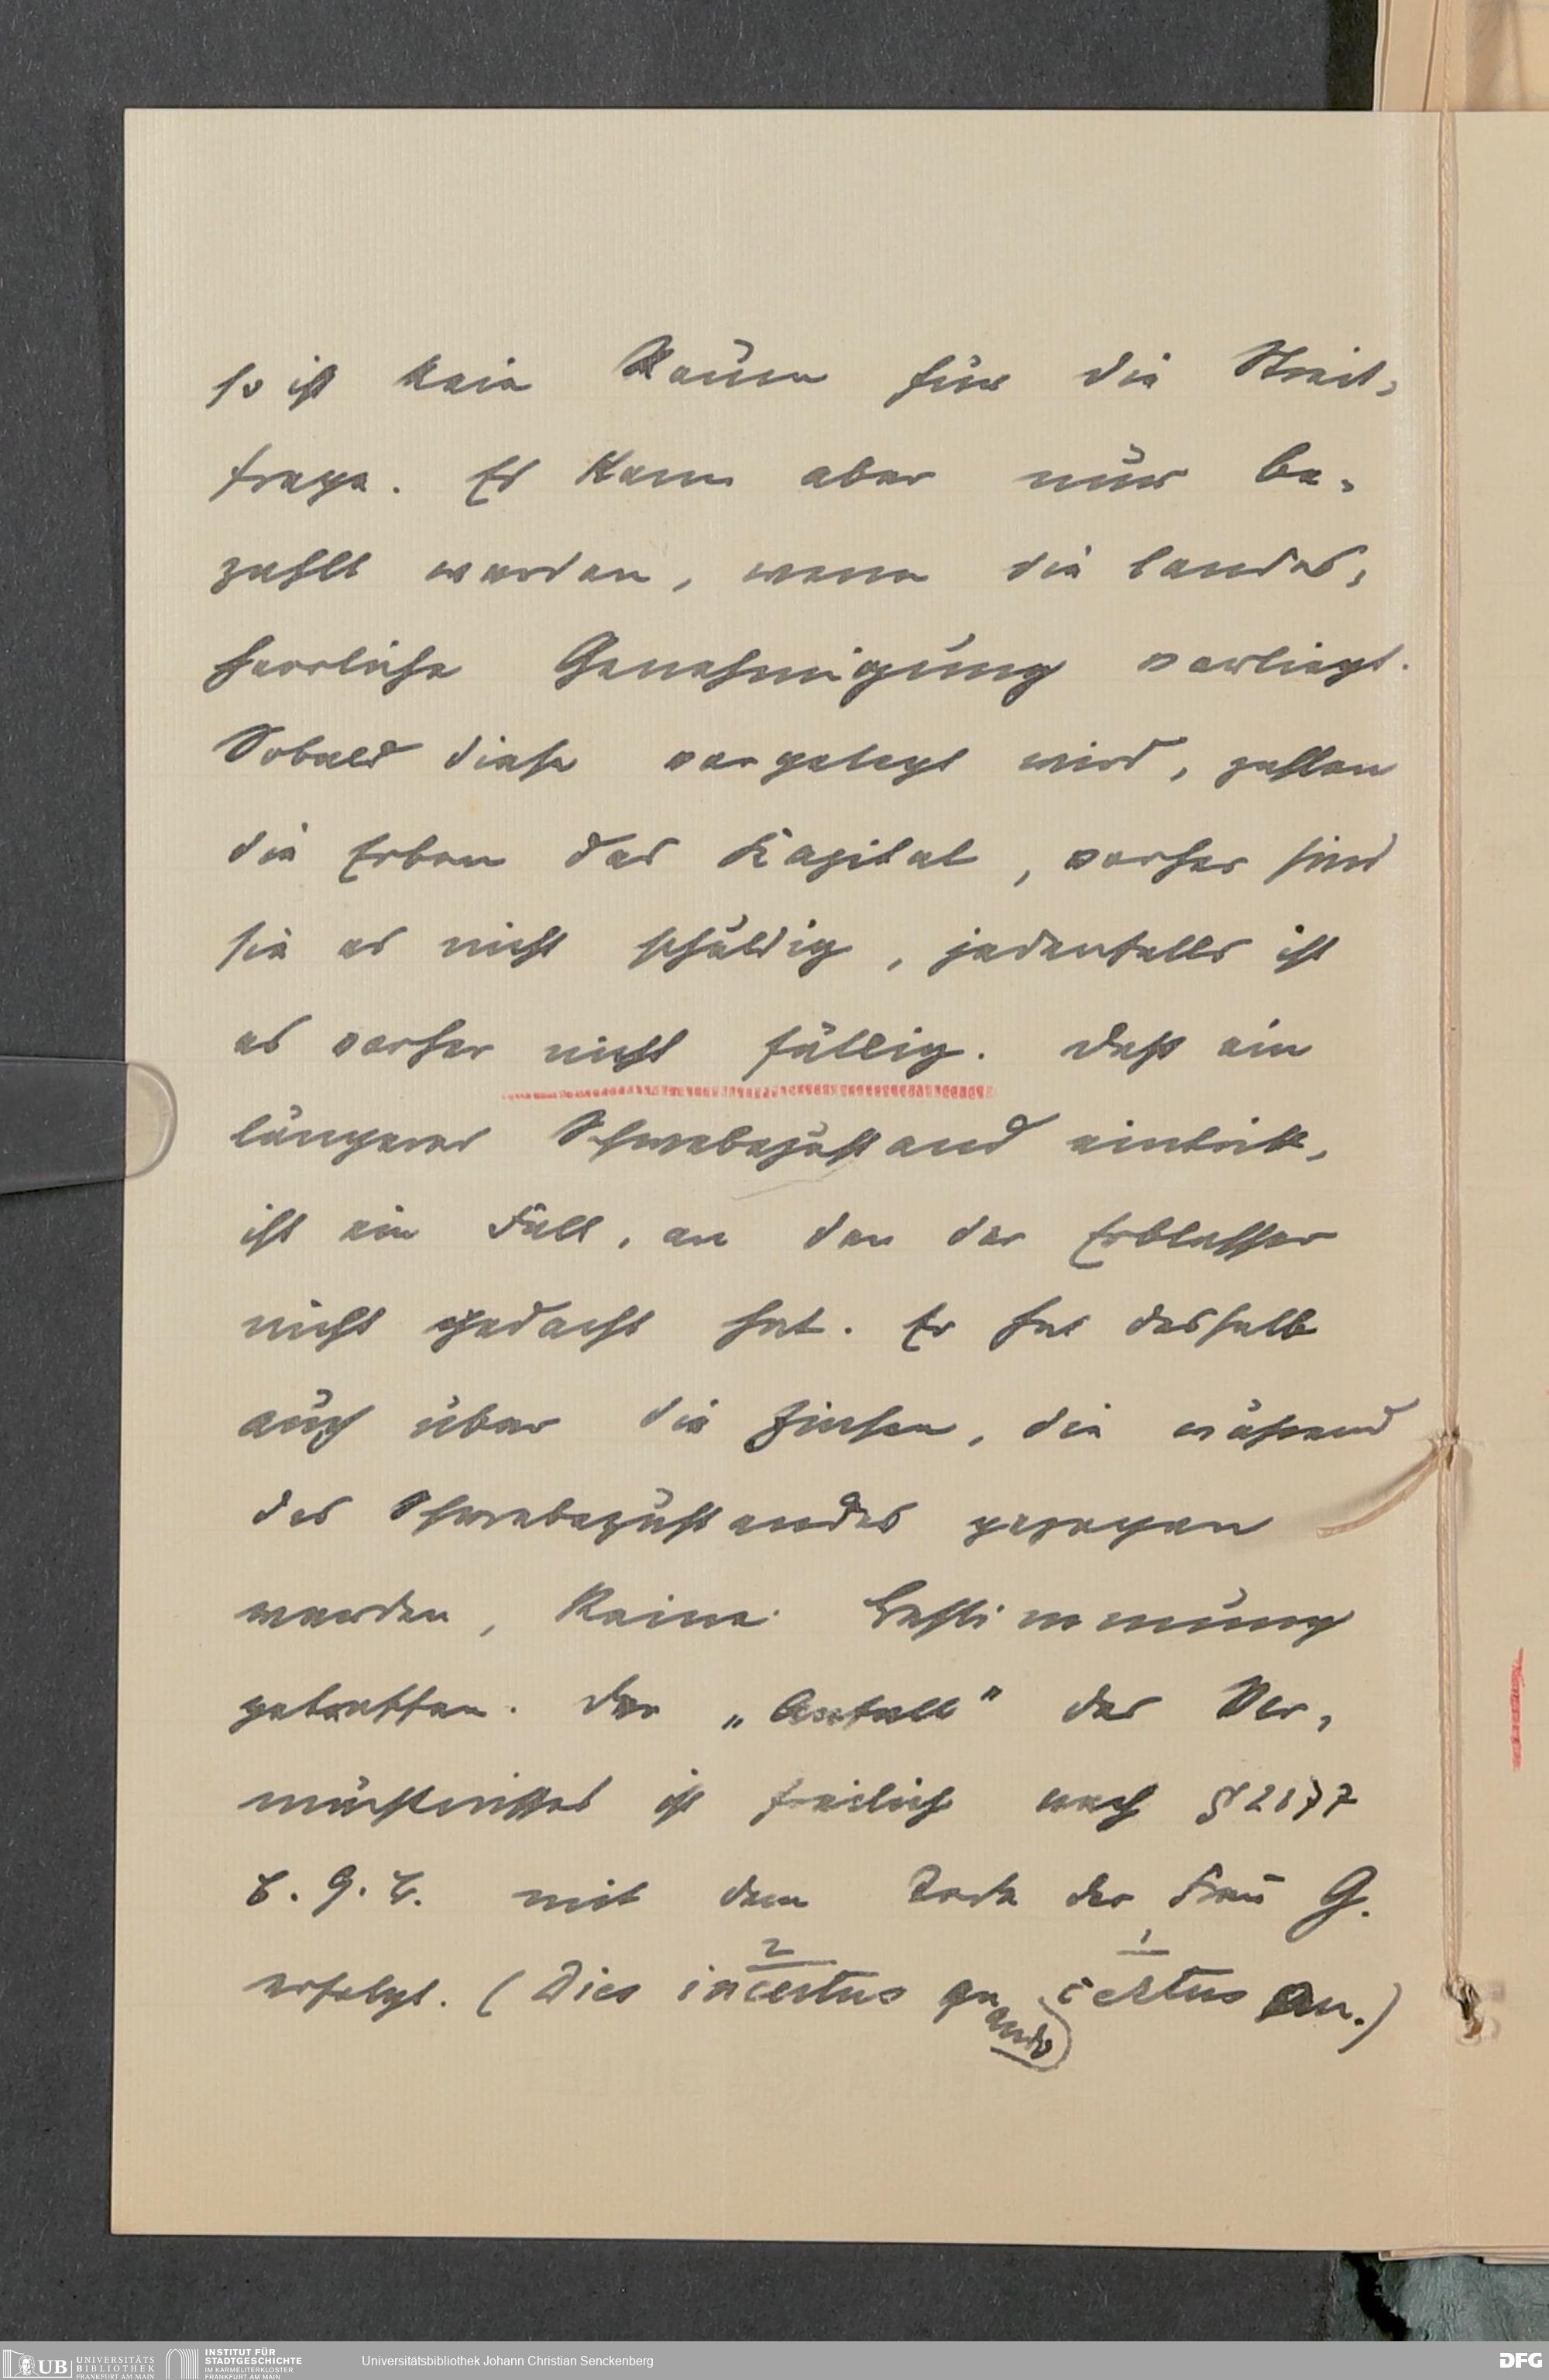 so ist kein Raum für die Streit-
frage. Es kann aber nur be-
zahlt werden, wenn die landes-
herrliche Genehmigung vorliegt.
Sobald diese vorgelegt wird, zahlen
die Erben das Kapital, vorher sind
sie es nicht schuldig, jedenfalls ist
es vorher nicht fällig. Daß ein
längerer Schwebezustand eintritt,
ist ein Fall, an den der Erblasser
nicht gedacht hat. Er hat deshalb
auch über die Zinsen, die während
des Schwebezustandes gezogen
werden, keine Bestimmung
getroffen. Der „Anfall" des Ver-
mächtnisses ist freilich nach § 2177
B. G. B. mit dem Tode der Frau G.
2 1
erfolgt. (Dies incertus quando certus an.)
UB UNIVERSITÄTS BIBLIOTHEK FRANKFURT AM MAIN
INSTITUT FÜR STADTGESCHICHTE IM KARMELITERKLOSTER FRANKFURT AM MAIN
Universitätsbibliothek Johann Christian Senckenberg
DFG